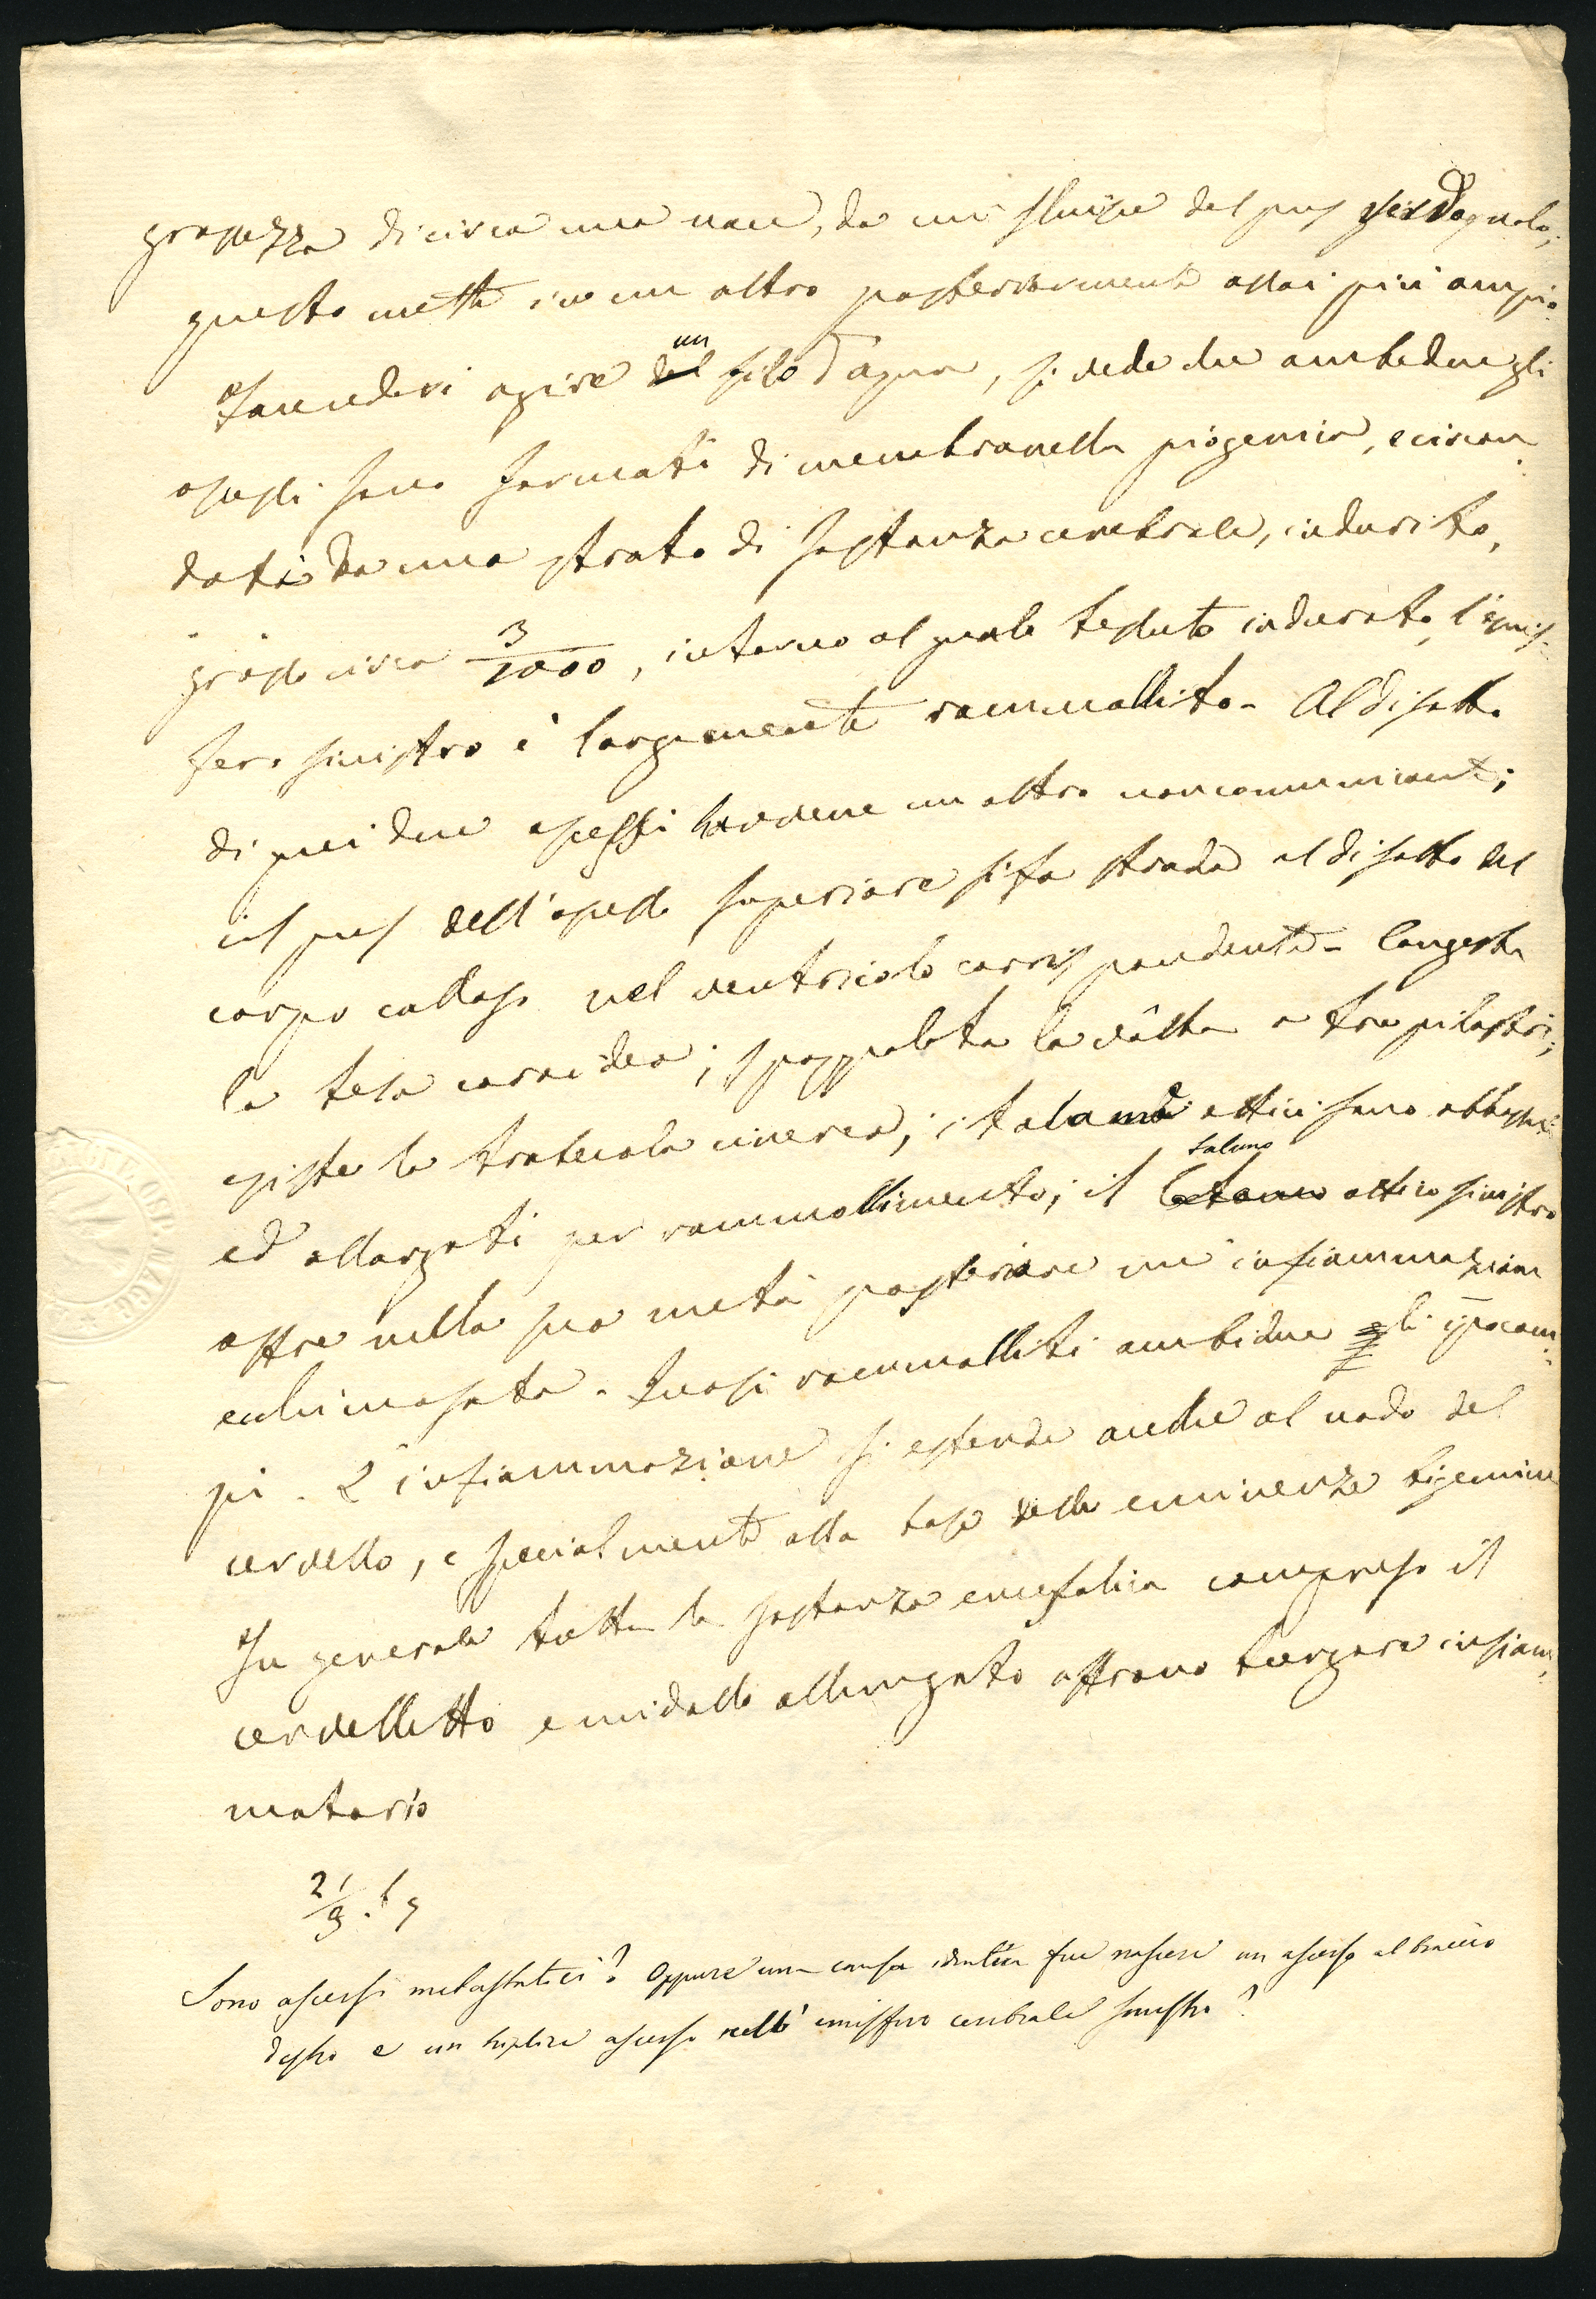 grossezza di circa una noce, da cui fluisce del pus verdognolo;
questo mette in un altro posteriormente assai più ampio
Facendovi agire del un filo d'aqua, si vede che ambedue gli
ascessi sono formati di membranella piogenica, e circon
dati da uno strato di sostanza cerebrale, indurito,
grosso circa 3/1000, intorno al quale tessuto indurato, l'emis
fero sinistro è largamente rammollito - Al disotto
di quei due ascessi havvene un altro non comunicante;
il pus dell'ascesso superiore si fa strada al disotto del
corpo calloso nel ventricolo corrispondente - Congesta
la tela coroidea; spappolata la vòlta a tre pilastri;
esiste la trabecola cinerea; i talami ottici sono abbassati
ed allargati per rammollimento; il talamo ottico sinistro
offre nella sua metà posteriore un'infiammazione
ecchimosata. Quasi rammolliti ambidue gli ipocam
pi. L'infiammazione si estende anche al nodo del
cervello, e specialmente alla base delle eminenze bigemine
In generale tutta la sostanza encefalica compreso il
cervelletto e midollo allungato offrono turgore infiam
matorio
21/9
Sono ascessi metastatici? Oppure una causa identica fece nascere un ascesso al braccio
destro e un triplice ascesso nell'emisfero cerebrale sinistro?